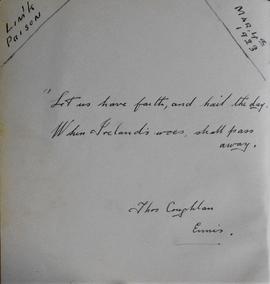 LIM'K
PRISON
MARCH 4th
1923
"Let us have faith, and hail the day.
When Ireland's woes, shall pass
away.
Thos Coughlan
Ennis.